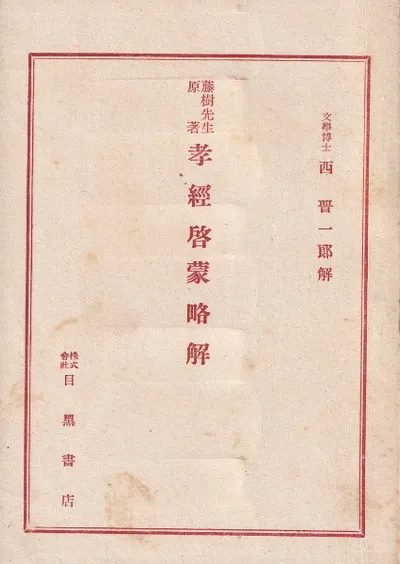 文學博士 西晋一郎解
藤樹先生
原著
孝經啓蒙略解
株式
會社
目黑書店